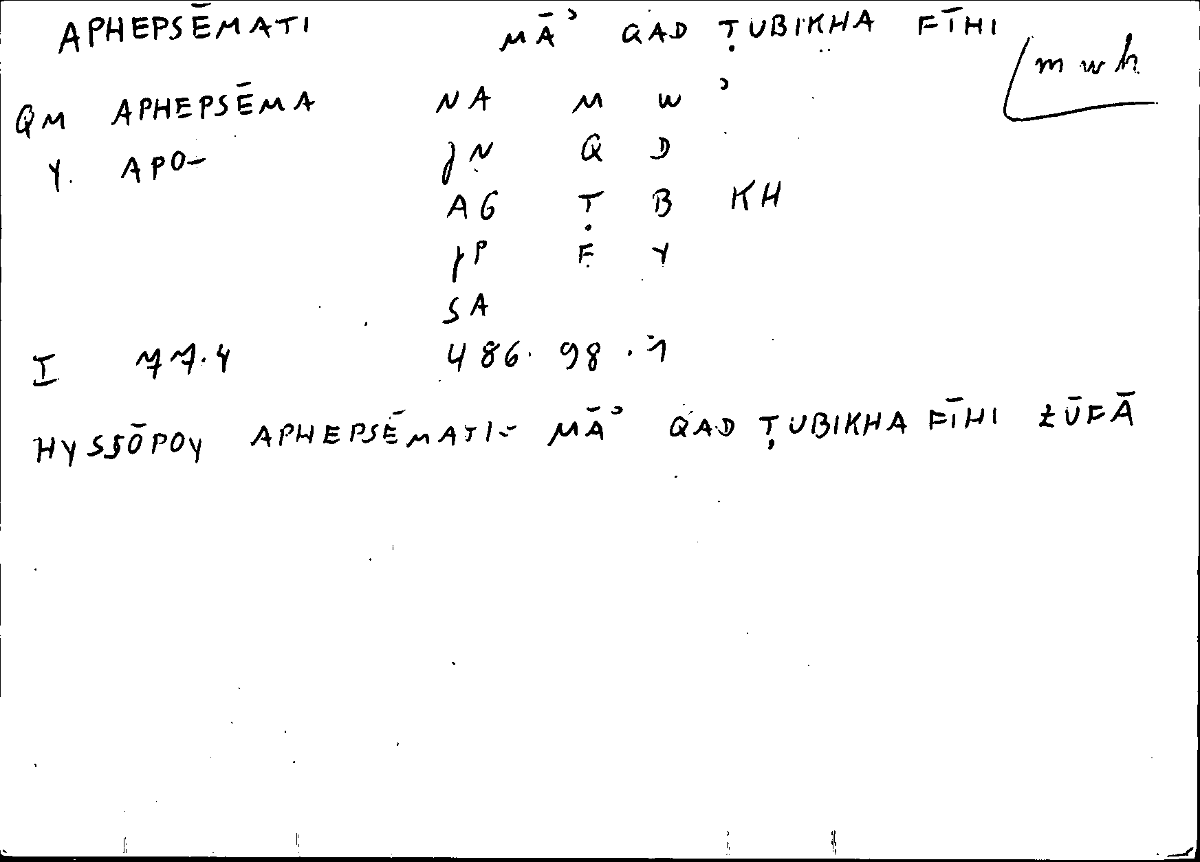 APHEPSĒMATI MĀʾ QAD ṬUBIKHA FĪHI
mwh
QM APHEPSĒMA NA M W ʾ
Y. APO- JN Q D
AG Ṭ B KH
JP F Y
SA
I 77.4 486.98.1
HYSSŌPOY APHEPSĒMATI- MĀʾ QAD ṬUBIKHA FĪHI ZŪFĀ